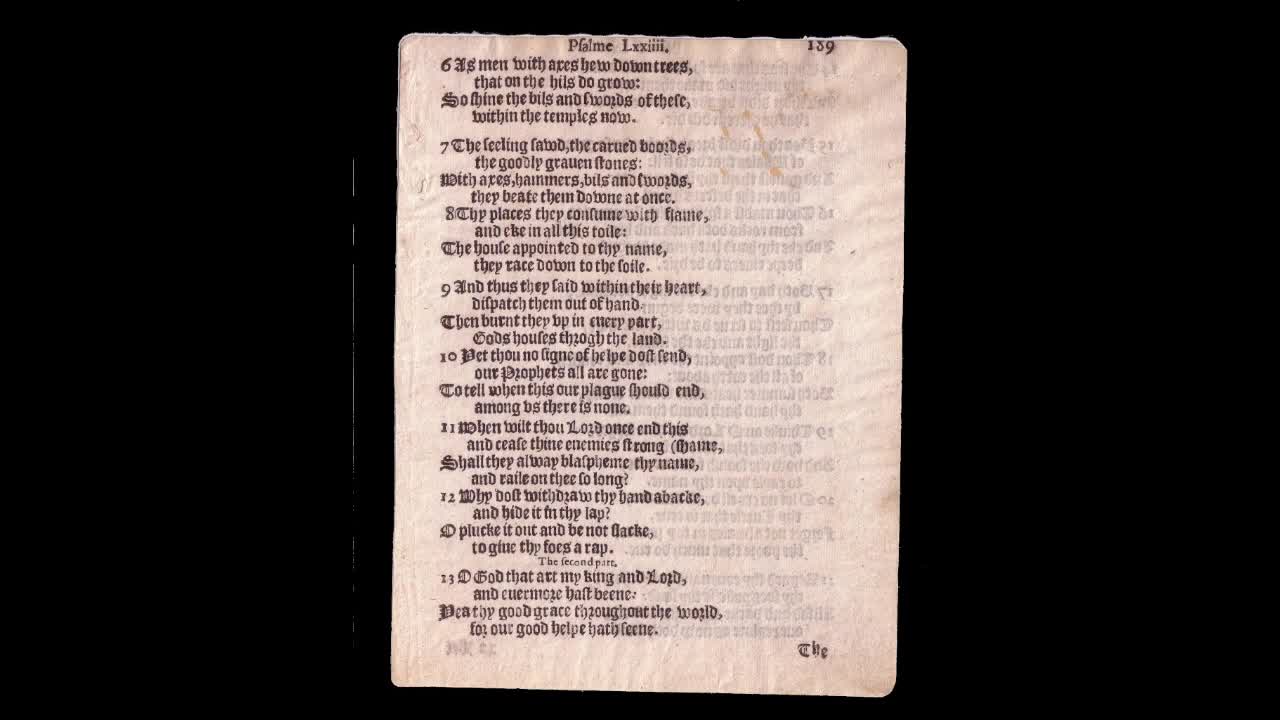 Psalme Lxxiiii. 189
6 As men with axes hew down trees,
that on the hils do grow:
So shine the bils and swords of these,
within the temples now.
7 The seeling sawd, the carued boords,
the goodly grauen stones:
With axes, hammers, bils and swords,
they beate them downe at once.
8 Thy places they consume with flame,
and eke in all this toile:
The house appointed to thy name,
they race down to the soile.
9 And thus they said within their heart,
dispatch them out of hand
Then burnt they vp in euery part,
Gods houses throgh the land.
10 Yet thou no signe of helpe dost send,
our Prophets all are gone:
To tell when this our plague should end,
among vs there is none.
11 When wilt thou Lord once end this
and cease thine enemies strong (shame,
Shall they alway blaspheme thy name,
and raile on thee so long?
12 Why dost withdraw thy hand abacke,
and hide it in thy lap?
O plucke it out and be not slacke,
to giue thy foes a rap.
The second part.
13 O God that art my king and Lord,
and euermore hast beene:
Yea thy good grace throughout the world,
for our good helpe hath seene.
The